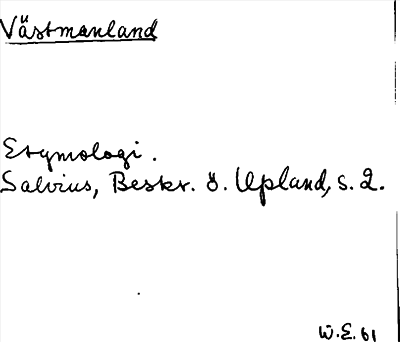 Västmanland
Etymologi.
Salvius, Beskr. ö. Upland, s. 2.
W.E. 61